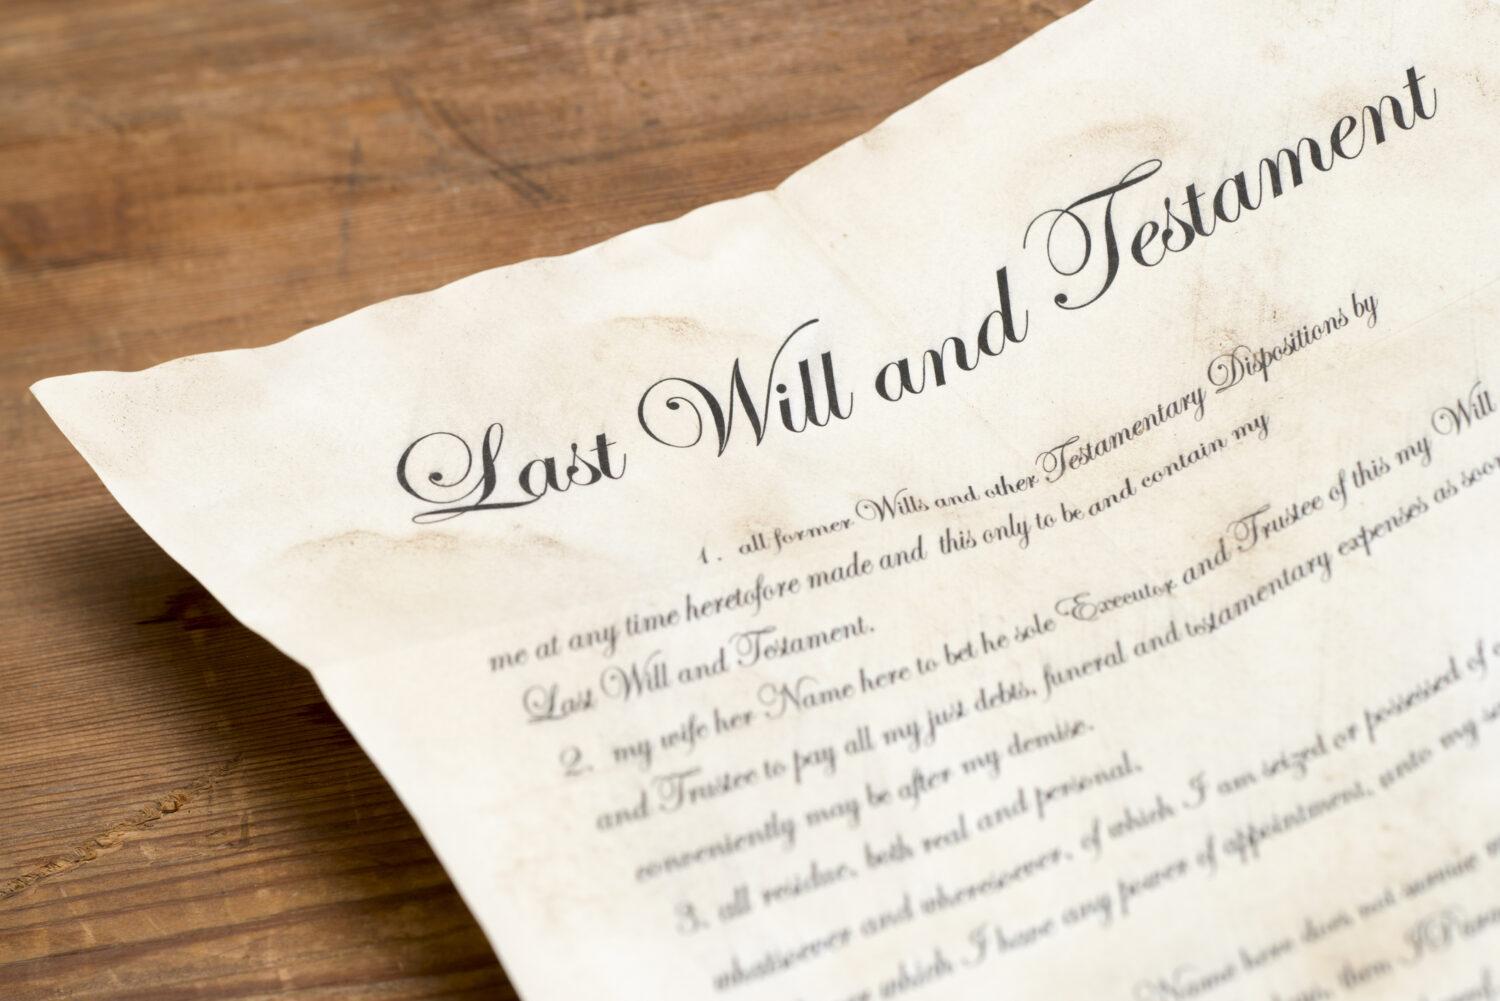 Last Will and Testament
1. all former Wills and other Testamentary Dispositions by
me at any time heretofore made and this only to be and contain my
Last Will and Testament.
2. my wife her Name here to bet he sole Executor and Trustee of this my Will
and Trustee to pay all my just debts, funeral and testamentary expenses as soon
conveniently may be after my demise.
3. all residue, both real and personal,
whatsoever and wheresoever, of which I am seized or possessed of
over which I have any power of appointment, unto my
Name here does not survive
them I